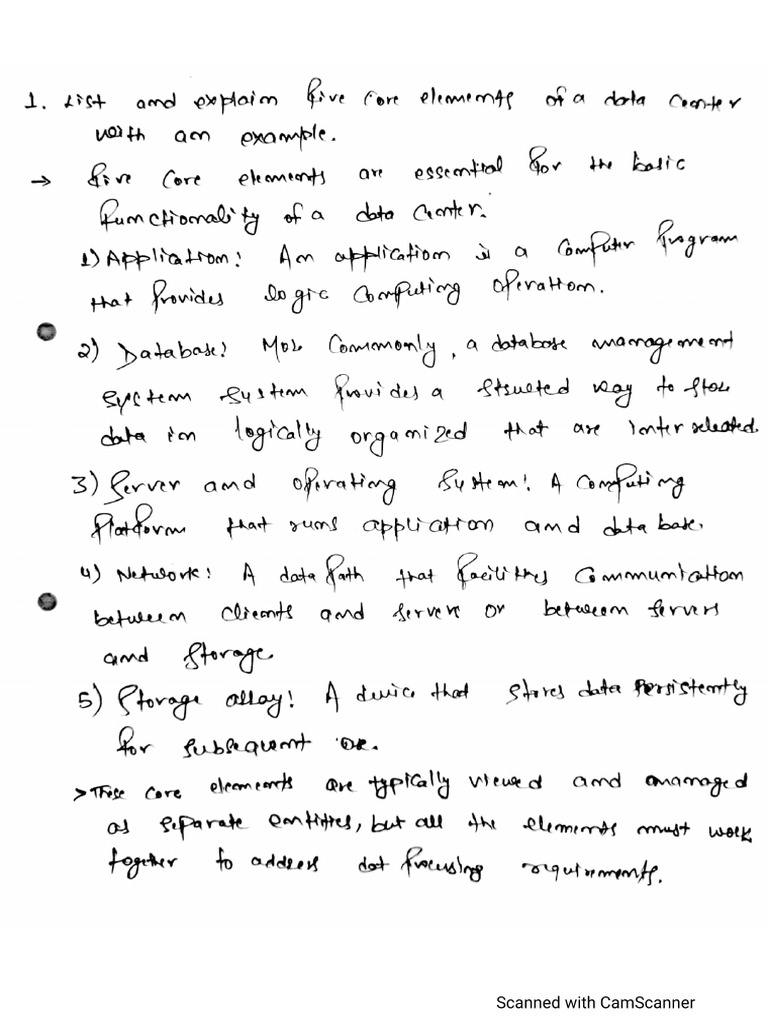 1. List and explain five core elements of a data center
with an example.
→ five core elements are essential for the basic
functionality of a data center.
1) Application: An application is a computer program
that provides logic computing operation.
2) Database: Mor commonly, a database management
system system provides a structed way to store
data in logically organized that are interrelated.
3) Server and operating system: A computing
Platform that runs application and database.
4) Network: A data path that facilities communication
between clients and servers or between servers
and storage.
5) Storage array: A device that stores data persistently
for subsequent
> These core elements are typically viewed and managed
as separate entities, but all the elements must work
together to address dat processing requirements.
Scanned with CamScanner